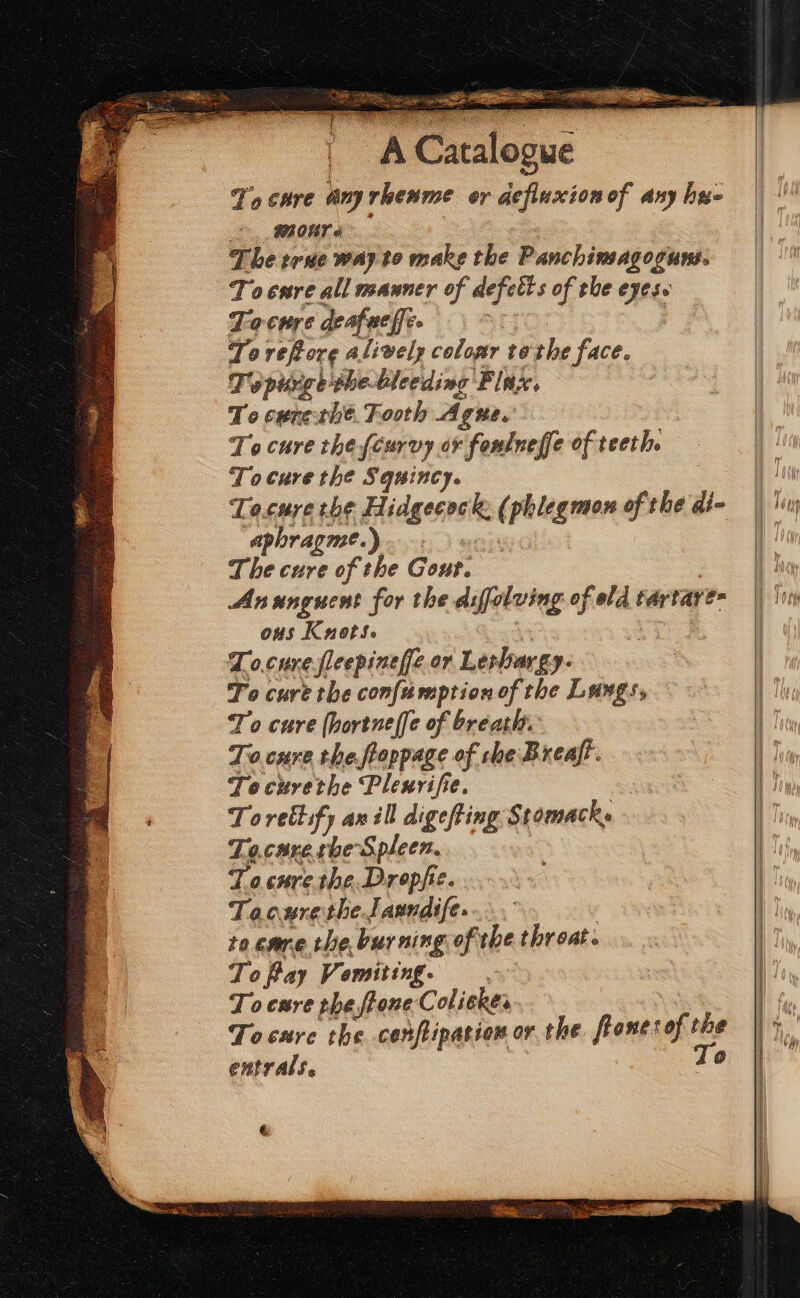 A Catalogue
To cure any rheume or defluxion of any hu-
mours
The true way to make the Panchimagogum.
To cure all manner of defects of the eyes.
To cure deafneſſe.
To reſtore a lively colour to the face.
To purge the bleeding Flux.
To cure the Tooth Ague.
To cure the ſcurvy or foulneſſe of teeth.
To cure the Squincy.
To cure the Hidgecock (phlegmon of the di-
aphragme.)
The cure of the Gout.
An unguent for the diſſolving of old tartare-
ous Knots.
To cure ſleepineſſe or Lethargy.
To cure the conſumption of the Lungs,
To cure ſhortneſſe of breath.
To cure the ſtoppage of the Breaſt.
To cure the Pleuriſie.
To rectify an ill digeſting Stomack.
To cure the Spleen.
To cure the Dropſie.
To cure the Iaundiſe.
to cure the burning of the throat.
To ſtay Vomiting.
To cure the ſtone Colicke.
To cure the conſtipation or the ſtones of the
entrals.
To